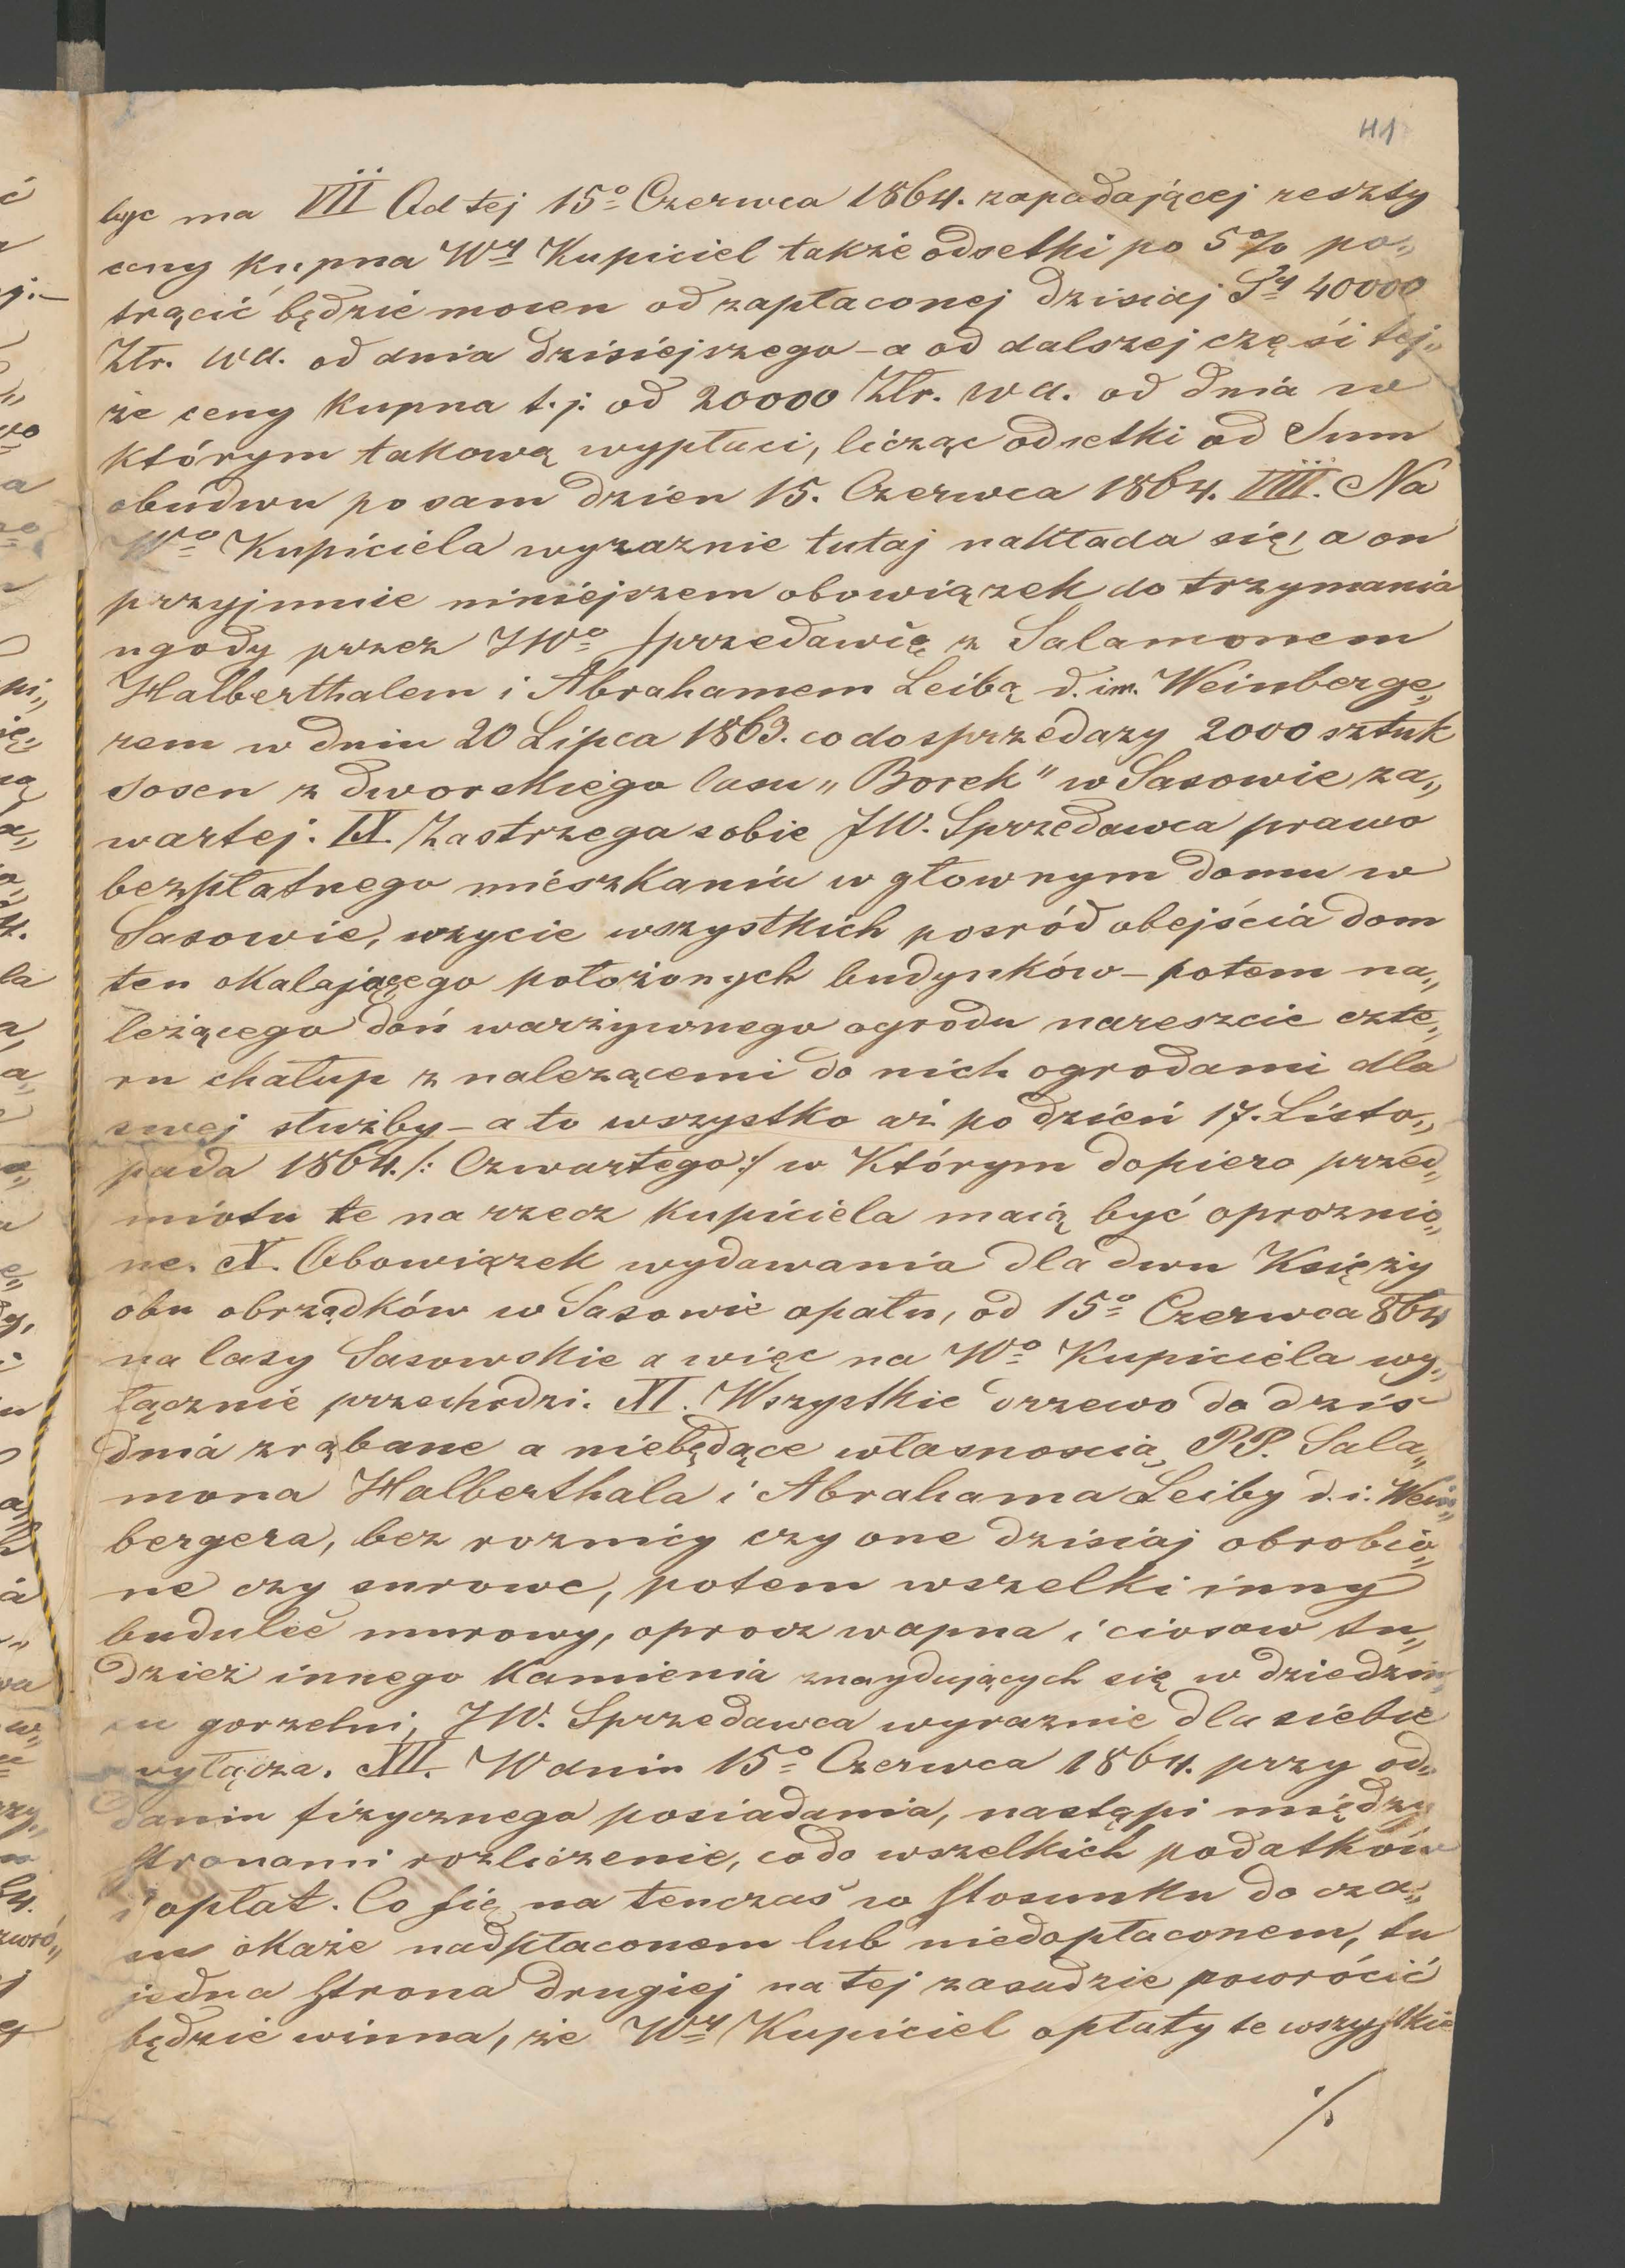 41
być ma VII Od tej 15º Czerwca 1864. zapadającej reszty
ceny kupna Wy Kupiciel także odsetki po 5% po„
trącić będzie mocen od zapłaconej dzisiaj 40000
Złr. wa. od dnia dzisiejszego – a od dalszej części tej„
że ceny kupna t. j. od 20000 Złr. wa. od dnia w
którym takową wypłaci, licząc odsetki od Sum
obudwu po sam dzien 15. Czerwca 1864. VIII. Na
Wº Kupiciela wyraznie tutaj nakłada się, a on
przyjmuie niniejszem obowiązek do trzymania
ugody przez JWº Sprzedawcę z Salamonem
Halberthalem i Abrahamem Leibą d. im. Weinberge„
rem w dniu 20 Lipca 1863. co do sprzedazy 2000 sztuk
sosen z dworskiego lasu „Borek" w Sasowie za„
wartej. IX. Zastrzega sobie JW. Sprzedawca prawo
bezpłatnego mieszkania w głownym domu w
Sasowie, uzycie wszystkich posród obejścia dom
ten okalającego położonych budynków – potem na„
leżącego doń warzywnego ogrodu nareszcie czte„
ru chałup z nalezącemi do nich ogrodami dla
swej służby – a to wszystko aż po dzień 17. Listo„
pada 1864. /: Czwartego :/ w Którym dopiero przed„
miotu te na rzecz kupiciela maią być oproznio„
ne. X. Obowiązek wydawania dla dwu Księży
obu obrządków w Sasowie opału, od 15º Czerwca 864
na lasy Sasowskie a więc na Wº Kupiciela wy„
łącznie przechodzi. XI. Wszystkie drzewo do dziś
dnia zrąbane a niebędące własnoscią PP. Sala„
mona Halberthala i Abrahama Leiby d. i. Wein„
bergera, bez roznicy czy one dzisiaj obrobio„
ne czy surowe, potem wszelki inny
budulec murowy, oprocz wapna i ciosow tu„
dzież innego kamienia znaydujących się w dziedziń„
cu gorzelni, JW. Sprzedawca wyraznie dla siebie
wyłącza. XII. W dniu 15º Czerwca 1864. przy od„
daniu fizycznego posiadania, nastąpi między
stronami rozliczenie, co do wszelkich podatków
i opłat. Co się na tenczas w stosunku do cza„
su okaże nadpłaconem lub niedopłaconem, tu
jedna strona drugiej na tej zasadzie powrócić
będzie winna, że Wy Kupiciel opłaty te wszystkie
./.